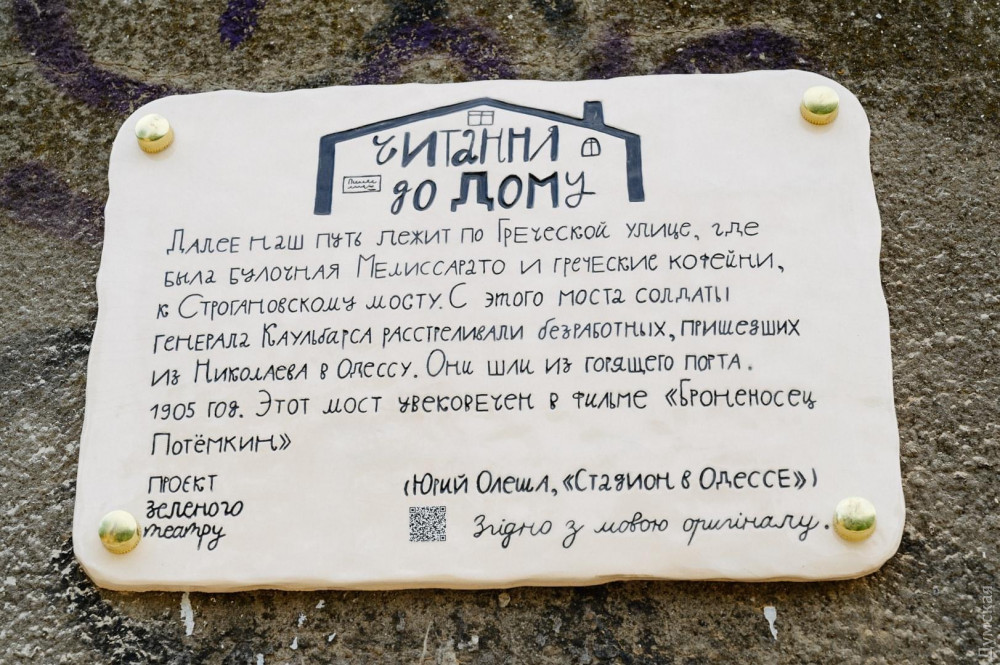 читання
до дому
Далее наш путь лежит по Греческой улице, где
была булочная Мелиссарато и греческие кофейни,
к Строгановскому мосту. С этого моста солдаты
генерала Каульбарса расстреливали безработных, пришедших
из Николаева в Одессу. Они шли из горящего порта.
1905 год. Этот мост увековечен в фильме «Броненосец
Потёмкин»
(Юрий Олеша, «Стадион в Одессе»)
Згідно з мовою оригіналу.
проєкт
зеленого
театру
Думская